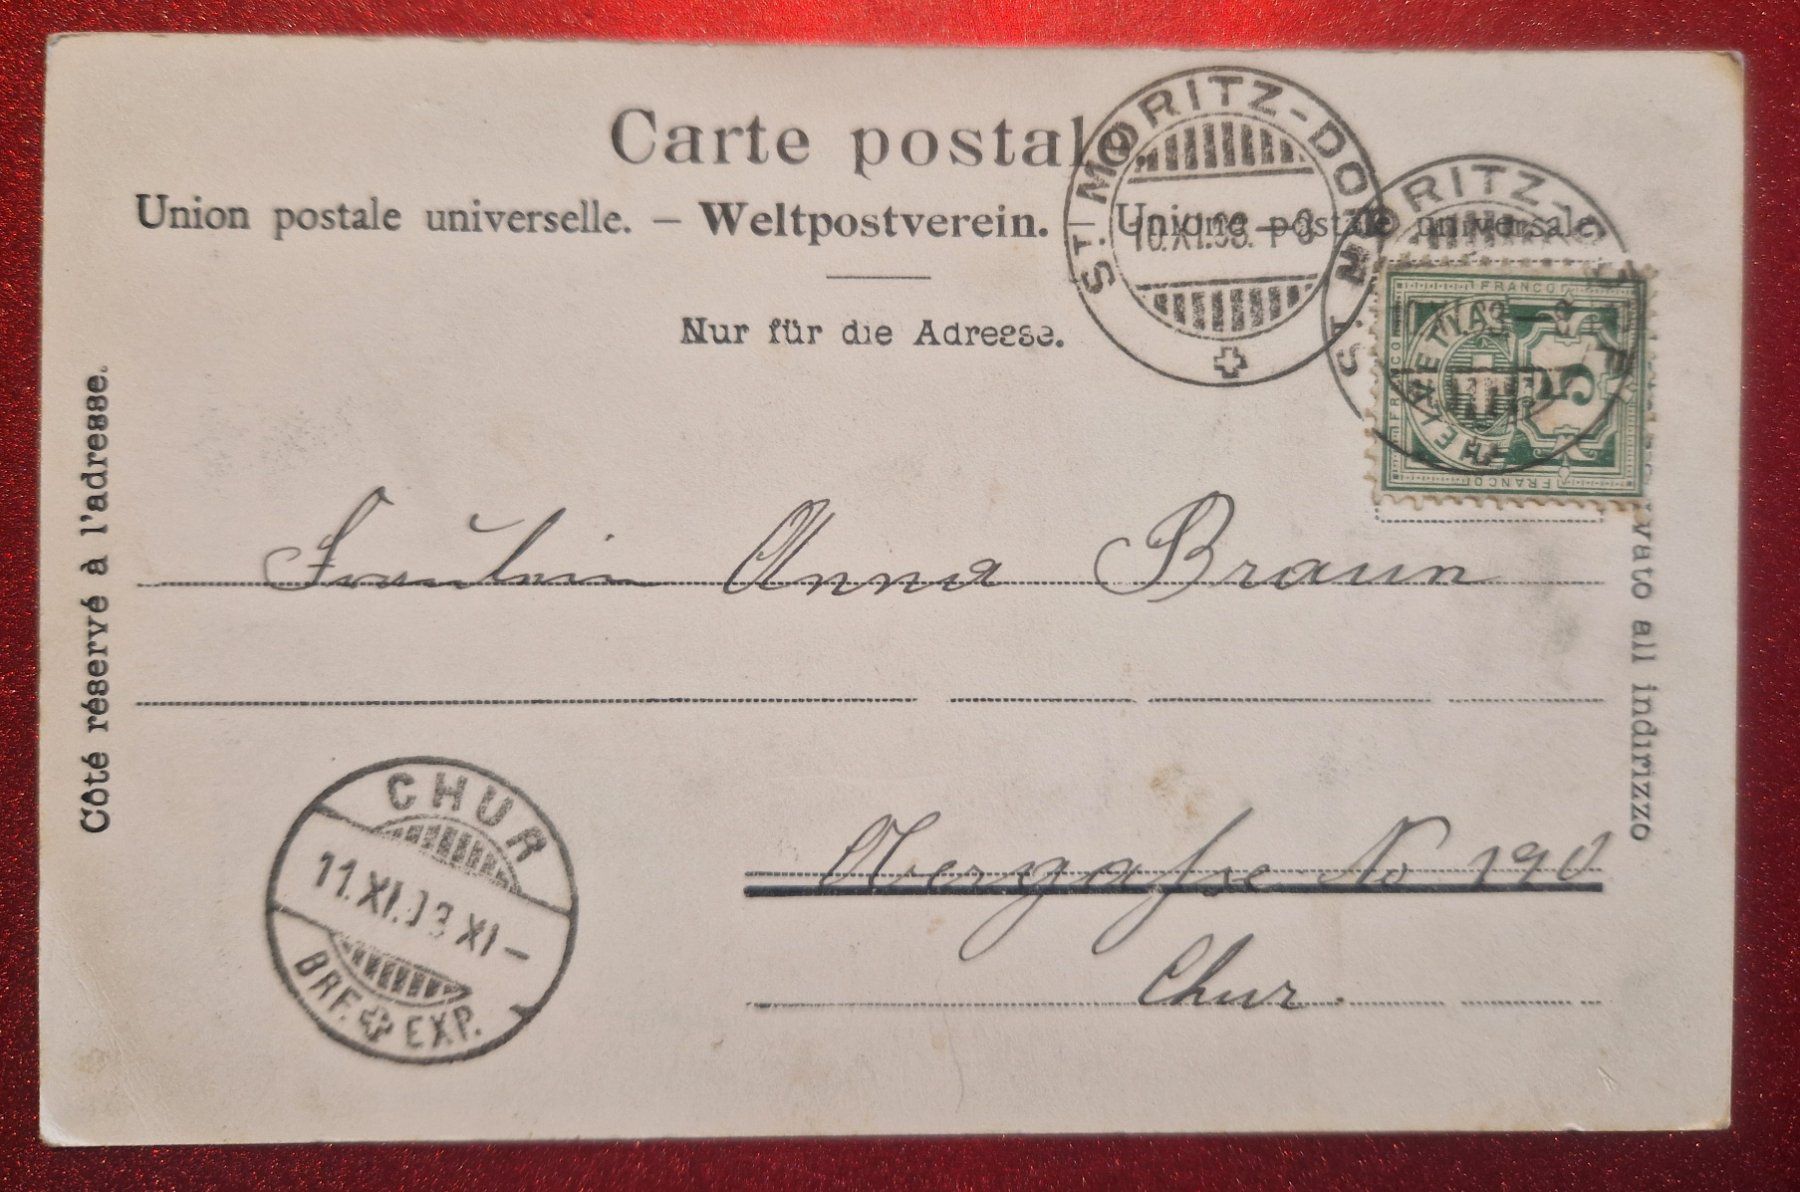 Carte postale
Union postale universelle. – Weltpostverein. – Unione postale universale
Nur für die Adresse.
Côté réservé à l'adresse.
vato all indirizzo
ST. MORITZ-DORF
10.XI.03.
ST. MORITZ-DORF
FRANCO
FRANCO
FRANCO
HELVETIA
5
Fräulein Anna Braun
Obergasse No 190
Chur.
CHUR
11.XI.03 XI–
BRF. EXP.